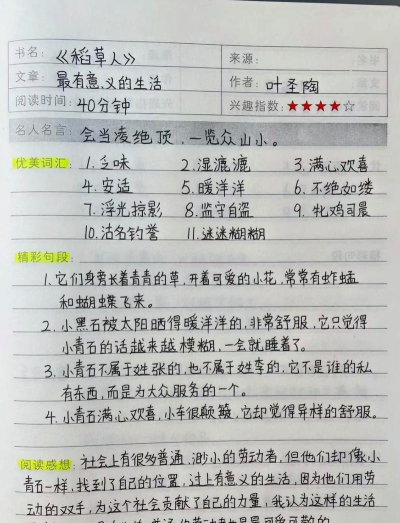 书名：《稻草人》 来源：
文章：最有意义的生活 作者：叶圣陶
阅读时间：40分钟 兴趣指数：★★★★☆
名人名言：会当凌绝顶，一览众山小。
优美词汇：1.乏味 2.湿漉漉 3.满心欢喜
4.安适 5.暖洋洋 6.不绝如缕
7.浮光掠影 8.监守自盗 9.牝鸡司晨
10.沽名钓誉 11.迷迷糊糊
精彩句段：
1.它们身旁长着青青的草，开着可爱的小花，常常有蚱蜢
和蝴蝶飞来。
2.小黑石被太阳晒得暖洋洋的，非常舒服，它只觉得
小青石的话越来越模糊，一会就睡着了。
3.小青石不属于姓张的，也不属于姓李的，它不是谁的私
有东西，而是为大众服务的一个。
4.小青石满心欢喜，小车很颠簸，它却觉得异样的舒服。
阅读感想：社会上有很多普通、渺小的劳动者，但他们却像小
青石一样，找到了自己的位置，过上有意义的生活，因为他们用劳
动的双手，为这个社会贡献了自己的力量，我认为这样的生活